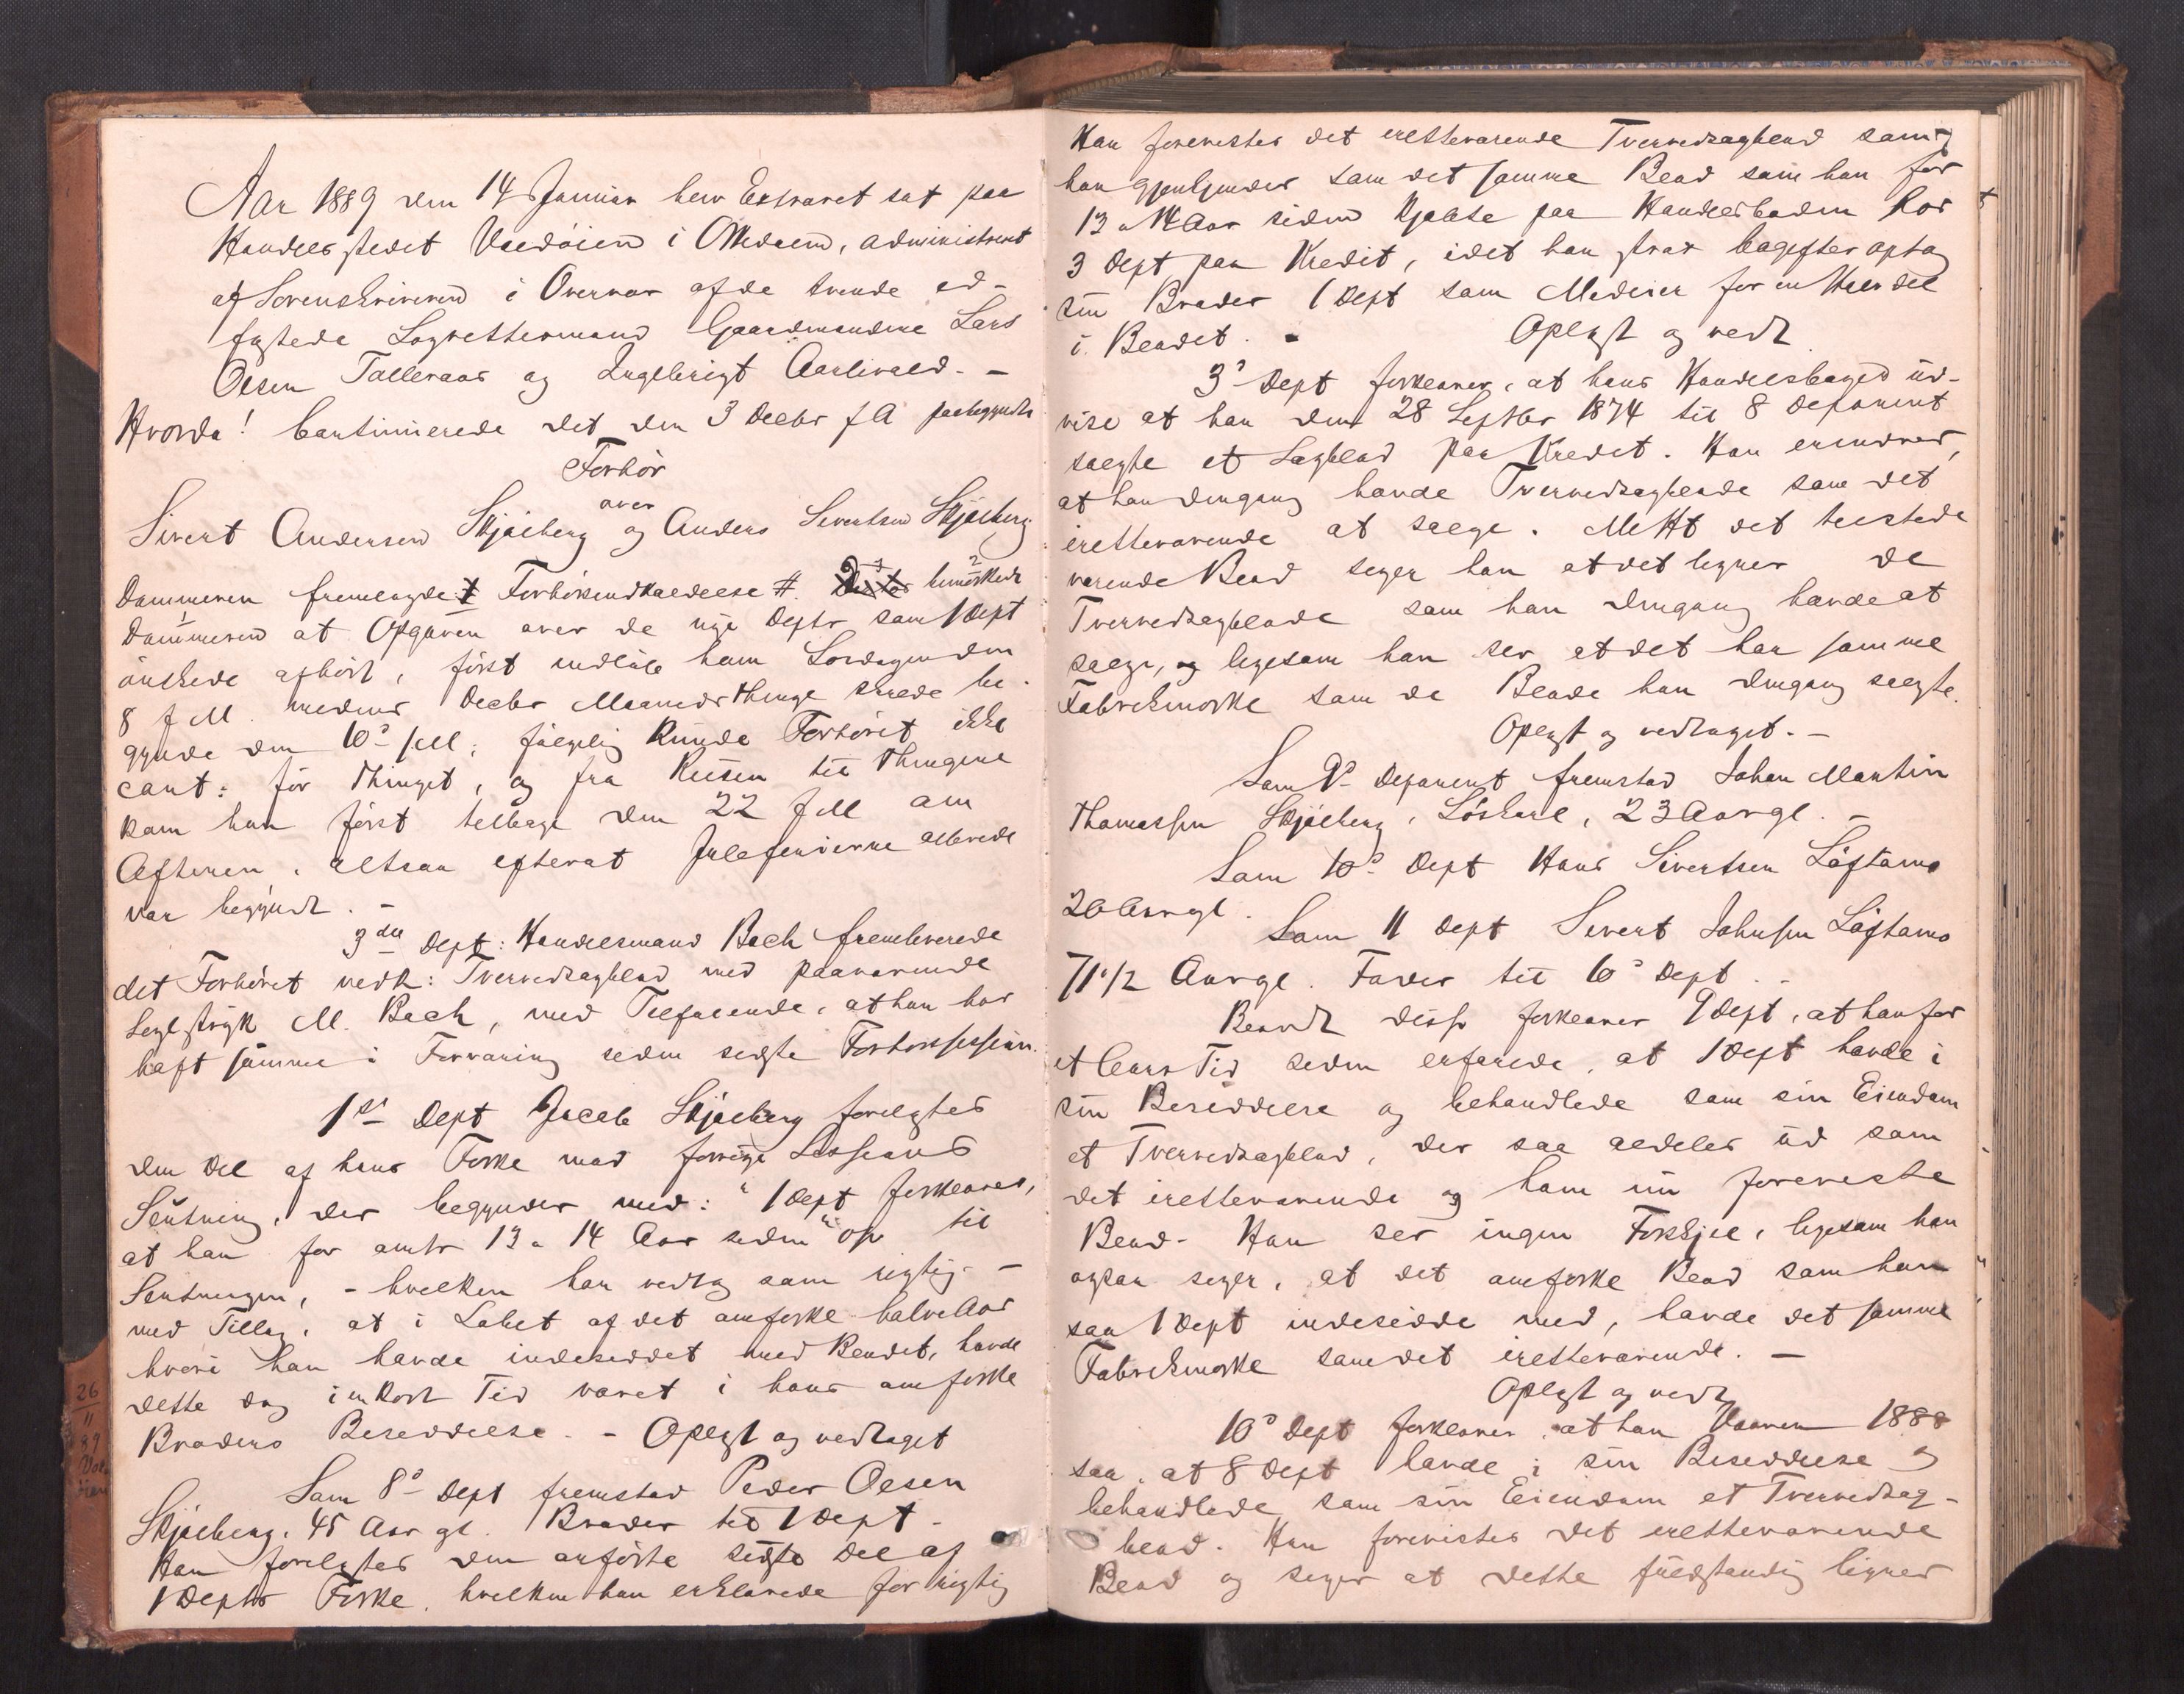 Aar 1889 den 14 Januar blev Extraret sat paa
Handelsstedet Vaedöien i Opdaem, administreret
af Sorenskriveren i Overvær af de tvende ed-
fæstede Lagrettesmænd Gaardmændene Lars
Olsen Talleraas og Ingebrigt Aarlivold. -
Hvorda! Continuerede det den 3 Decbr f A paabegyndte
Forhör
over
Sivert Andersen Skjölberg og Anders Sivertsen Skjölberg
Dommeren fremlagde Forhörsindkaldelse #. bemærkede
Dommeren at Opgaven over de nye Depts som 1 Dept
önskede afhört, först indlöb ham Lördagen den
8 f M. medens Decbr Maaneds Thinge skulde be-
gynde den 10de f M; fölgelig kunde Forhöret ikke
cont: för Thinget, og fra Reisen til Thingene
kom han först tilbage den 22 f M om
Aftenen, altsaa efterat Juleferierne allerede
var begyndt. -
3die Dept: Handelsmand Bach fremleverede
det Forhöret vedk: Tvervedsagblad med paaværende
Seglstryk M. Bach, med Tilföiende, at han har
haft samme i Forvaring siden sidste Forhörssession.
1ste Dept Jacob Skjölberg forelystes
den Del af hans Forkl mod forrige Sessions
Slutning, der begynder med: "1 Dept forklarer,
at han for omtr 13 a 14 Aar siden" osv til
Slutningen, - hvilken han vedtog som rigtig -
med Tillæg, at i Löbet af det omforkl halve Aar
hvori han havde indesiddet med Bladet, havde
dette dog i en kort Tid været i hans omforkl
Broders Besiddelse. - Oplæst og vedtaget
Som 8de Dept fremstod Peder Olsen
Skjölberg, 45 Aar gl. Broder til 1 Dept -
Han forelystes den anförte sidste Del af
1 Depts Forkl. hvilken han erklærede for rigtig
Han forevistes det iretteværende Tvervedsagblad som
han gjenkjender som det samme Blad som han for
13 a 14 Aar siden kjöbte paa Handelsboden hos
3 Dept paa Kredit, idet han strax bagefter optog
sin Broder 1 Dept som Medeier for en Halvdel
i Bladet. - Oplæst og vedt.
3de Dept forklarer, at hans Handelsböger ud-
vise at han den 28 Septbr 1874 til 8 Deponent
solgte et Sagblad paa Kredit. Han erindrer,
at han dengang havde Tvervedsagblade som det
iretteværende at sælge. M Ht det tilstede
værende Blad siger han at det ligner de
Tvervedsagblade som han dengang havde at
sælge, og ligesom han ser at det har samme
Fabrikmærke som de Blade han dengang solgte.
Oplæst og vedtaget. -
Som 9de Deponent fremstod Johan Martin
Thomassen Skjölberg, Löskarl, 23 Aar gl. -
Som 10de Dept Hans Sivertsen Löftamo
20 Aar gl.
Som 11 Dept Sivert Johnsen Löftamo
71 1/2 Aar gl. Fader til 10de Dept.
Blandt disse forklarer 9 Dept, at han for
et Aars Tid siden erfarede, at 1 Dept havde i
sin Besiddelse og behandlede som sin Eiendom
et Tvervedsagblad, der saa aldeles ud som
det iretteværende og ham nu foreviste
Blad. Han ser ingen Forskjel, ligesom han
ogsaa siger, at det omforkl Blad som han
saa 1 Dept indesidde med, havde det samme
Fabrikmærke som det iretteværende. -
Oplæst og vedt
10de Dept forklarer, at han Vaaren 1888
saa, at 8 Dept havde i sin Besiddelse og
behandlede som sin Eiendom et Tvervedsag-
blad. Han forevistes det iretteværende
Blad og siger at dette fuldstændig ligner
26
11
89